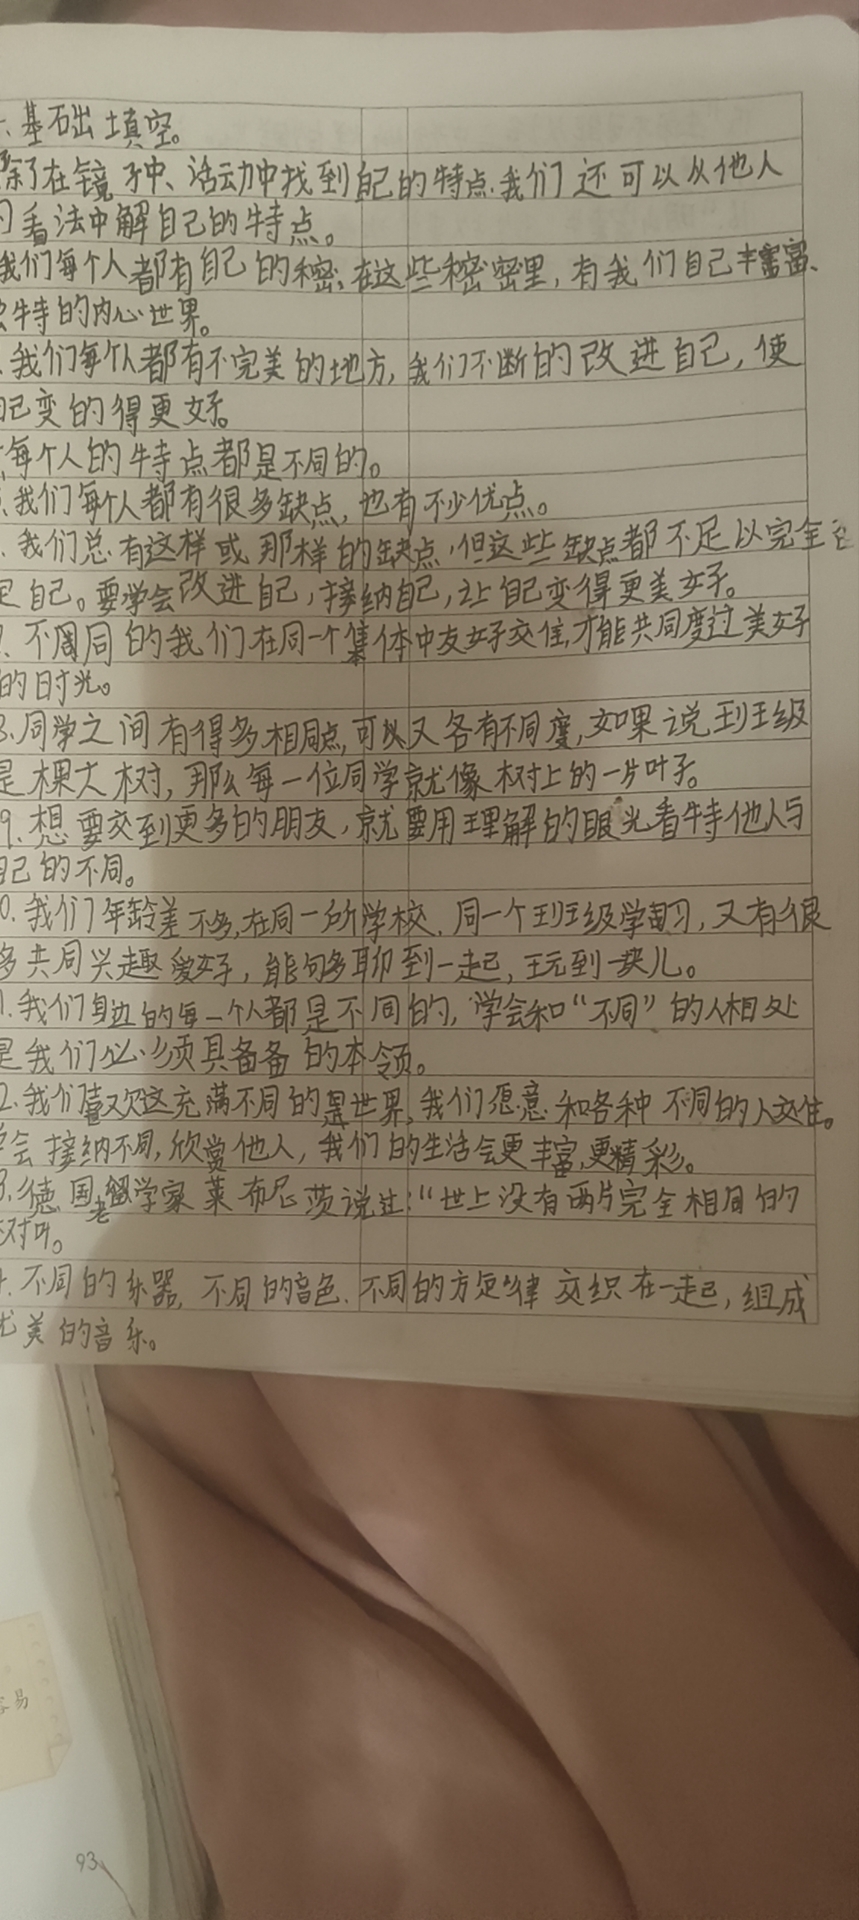 基础填空。
除了在镜子中、活动中找到自己的特点,我们还可以从他人
看法中解自己的特点。
我们每个人都有自己的秘密,在这些秘密里,有我们自己丰富、
特的内心世界。
我们每个人都有不完美的地方,我们不断的改进自己,使
己变的得更好。
每个人的特点都是不同的。
我们每个人都有很多缺点,也有不少优点。
我们总有这样或那样的缺点,但这些缺点都不足以完全否
定自己。要学会改进自己,接纳自己,让自己变得更美好。
7.不同的我们在同一个集体中友好交往,才能共同度过美好
的时光。
8.同学之间有得多相同点,可以又各有不同度,如果说班级
是棵大树,那么每一位同学就像树上的一片叶子。
9.想要交到更多的朋友,就要用理解的眼光看待他人与
自己的不同。
0.我们年龄差不多,在同一所学校,同一个班级学习,又有很
多共同兴趣爱好,能够多聊到一起,玩到一块儿。
1.我们身边的每一个人都是不同的,学会和“不同”的人相处
是我们必须具备备的本领。
2.我们喜欢这充满不同的是世界,我们愿意和各种不同的人交往。
学会接纳不同,欣赏他人,我们的生活会更丰富,更精彩。
3.德国哲学家莱布尼茨说过:“世上没有两片完全相同的
树叶。
不同的乐器,不同的音色,不同的旋律交织在一起,组成
优美的音乐。
容易
93